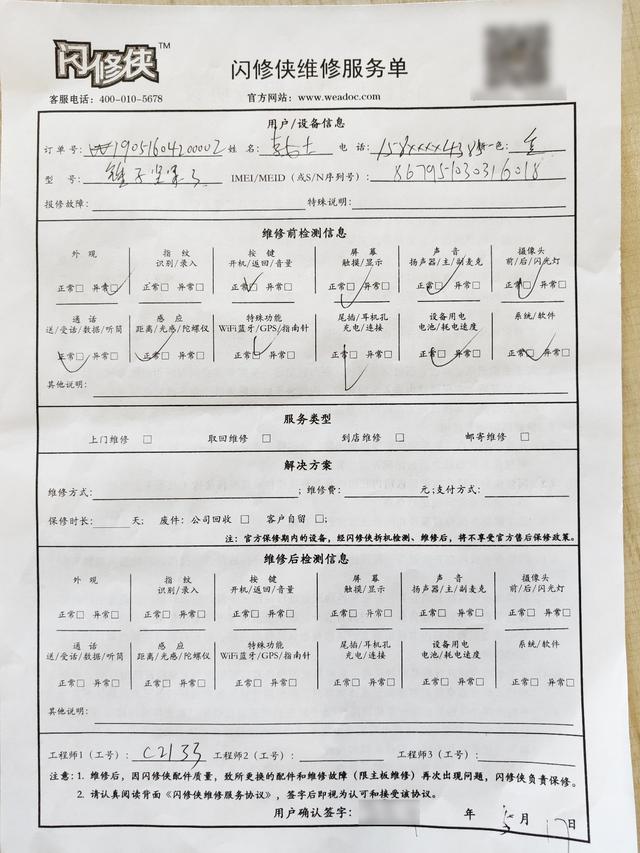 闪修侠™
闪修侠维修服务单
客服电话：400-010-5678 官方网站：www.weadoc.com
用户/设备信息
订单号：W1905160420002 姓名： 电话：158xxxx4385 颜色：金
型号： IMEI/MEID（或S/N序列号）：867951030316018
报修故障： 特殊说明：
维修前检测信息
外观 指纹 按键 屏幕 声音 摄像头
识别/录入 开机/返回/音量 触摸/显示 扬声器/主/副麦克 前/后/闪光灯
正常□ 异常□ 正常□ 异常□ 正常□ 异常□ 正常□ 异常□ 正常□ 异常□ 正常□ 异常□
通话 感应 特殊功能 尾插/耳机孔 设备用电 系统/软件
送/受话/数据/听筒 距离/光感/陀螺仪 WiFi蓝牙/GPS/指南针 充电/连接 电池/耗电速度
正常□ 异常□ 正常□ 异常□ 正常□ 异常□ 正常□ 异常□ 正常□ 异常□ 正常□ 异常□
其他说明：
服务类型
上门维修 □ 取回维修 □ 到店维修 □ 邮寄维修 □
解决方案
维修方式： ；维修费： 元；支付方式：
保修时长： 天； 废件：公司回收 □ 客户自留 □；
注：官方保修期内的设备，经闪修侠拆机检测、维修后，将不享受官方售后保修政策。
维修后检测信息
外观 指纹 按键 屏幕 声音 摄像头
识别/录入 开机/返回/音量 触摸/显示 扬声器/主/副麦克 前/后/闪光灯
正常□ 异常□ 正常□ 异常□ 正常□ 异常□ 正常□ 异常□ 正常□ 异常□ 正常□ 异常□
通话 感应 特殊功能 尾插/耳机孔 设备用电 系统/软件
送/受话/数据/听筒 距离/光感/陀螺仪 WiFi蓝牙/GPS/指南针 充电/连接 电池/耗电速度
正常□ 异常□ 正常□ 异常□ 正常□ 异常□ 正常□ 异常□ 正常□ 异常□ 正常□ 异常□
其他说明：
工程师1（工号）：C2133 工程师2（工号）： 工程师3（工号）：
注意：1. 维修后，因闪修侠配件质量，致所更换的配件和维修故障（限主板维修）再次出现问题，闪修侠负责保修。
2. 请认真阅读背面《闪修侠维修服务协议》，签字后即视为认可和接受该协议。
用户确认签字： 年 5月 17日